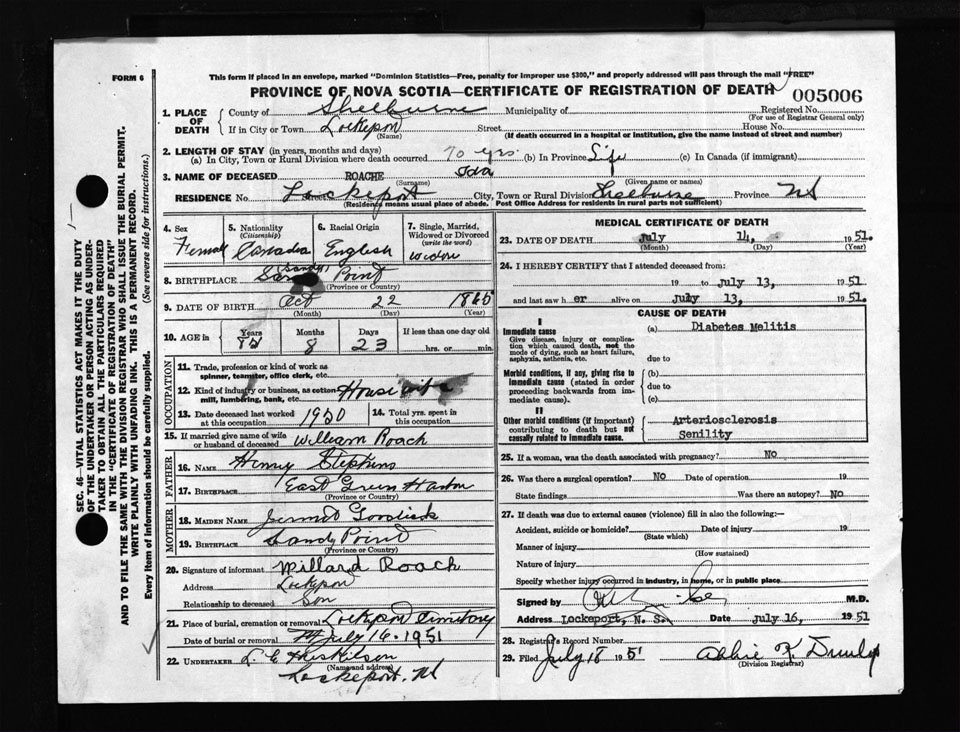 FORM 6
This form if placed in an envelope, marked "Dominion Statistics—Free, penalty for improper use $300," and properly addressed will pass through the mail "FREE"
PROVINCE OF NOVA SCOTIA—CERTIFICATE OF REGISTRATION OF DEATH
005006
SEC. 46—VITAL STATISTICS ACT MAKES IT THE DUTY
OF THE UNDERTAKER OR PERSON ACTING AS UNDER-
TAKER TO OBTAIN ALL THE PARTICULARS REQUIRED
IN THE "CERTIFICATE OF REGISTRATION OF DEATH"
AND TO FILE THE SAME WITH THE DIVISION REGISTRAR WHO SHALL ISSUE THE BURIAL PERMIT.
WRITE PLAINLY WITH UNFADING INK. THIS IS A PERMANENT RECORD.
Every item of information should be carefully supplied. (See reverse side for instructions.)
1. PLACE OF DEATH
County of Shelburne Municipality of Registered No.
(For use of Registrar General only)
If in City or Town Lockeport Street House No.
(Name) (If death occurred in a hospital or institution, give the name instead of street and number)
2. LENGTH OF STAY (in years, months and days)
(a) In City, Town or Rural Division where death occurred 70 yrs. (b) In Province Life (c) In Canada (if immigrant)
3. NAME OF DECEASED ROACHE Ida
(Surname) (Given name or names)
RESIDENCE No. Street Lockeport City, Town or Rural Division Shelburne Province NS
(Residence means usual place of abode. Post Office Address for residents in rural parts not sufficient)
4. Sex
Female
5. Nationality
(Citizenship)
Canadian
6. Racial Origin
English
7. Single, Married,
Widowed or Divorced
(write the word)
Widow
8. BIRTHPLACE Sandy Point
(Province or Country)
9. DATE OF BIRTH Oct 22
(Month) (Day) (Year)
10. AGE in Years Months Days If less than one day old
8 23 hrs. or min.
OCCUPATION
11. Trade, profession or kind of work as
spinner, teamster, office clerk, etc.
12. Kind of industry or business, as cotton
mill, lumbering, bank, etc. House wife
13. Date deceased last worked
at this occupation 1950
14. Total yrs. spent in
this occupation
15. If married give name of wife
or husband of deceased William Roach
FATHER
16. NAME Henry Stephens
17. BIRTHPLACE East Green Harbor
(Province or Country)
MOTHER
18. MAIDEN NAME
19. BIRTHPLACE Sandy Point
(Province or Country)
20. Signature of informant Millard Roach
Address Lockeport
Relationship to deceased Son
21. Place of burial, cremation or removal Lockeport Cemetery
Date of burial or removal July 16 - 1951
22. UNDERTAKER L. E. Huskilson
(Name and address)
Lockeport. NS
MEDICAL CERTIFICATE OF DEATH
23. DATE OF DEATH July 14, 1951.
(Month) (Day)
24. I HEREBY CERTIFY that I attended deceased from:
19 to July 13, 1951
and last saw her alive on July 13, 1951.
CAUSE OF DEATH
I
Immediate cause
Give disease, injury or complica-
tion which caused death, not the
mode of dying, such as heart failure,
asphyxia, asthenia, etc.
(a) Diabetes Melitis
due to
Morbid conditions, if any, giving rise to
immediate cause (stated in order
proceeding backwards from im-
mediate cause).
(b)
due to
(c)
II
Other morbid conditions (if important)
contributing to death but not
causally related to immediate cause.
Arteriosclerosis
Senility
25. If a woman, was the death associated with pregnancy? No
26. Was there a surgical operation? No Date of operation 19
State findings Was there an autopsy? No
27. If death was due to external causes (violence) fill in also the following:—
Accident, suicide or homicide? Date of injury 19
(State which)
Manner of injury
(How sustained)
Nature of injury
Specify whether injury occurred in industry, in home, or in public place
Signed by M.D.
Address Lockeport, N. S. Date July 16, 1951
28. Registrar's Record Number
29. Filed July 18 1951 Abbie K. Dunlop
(Division Registrar)